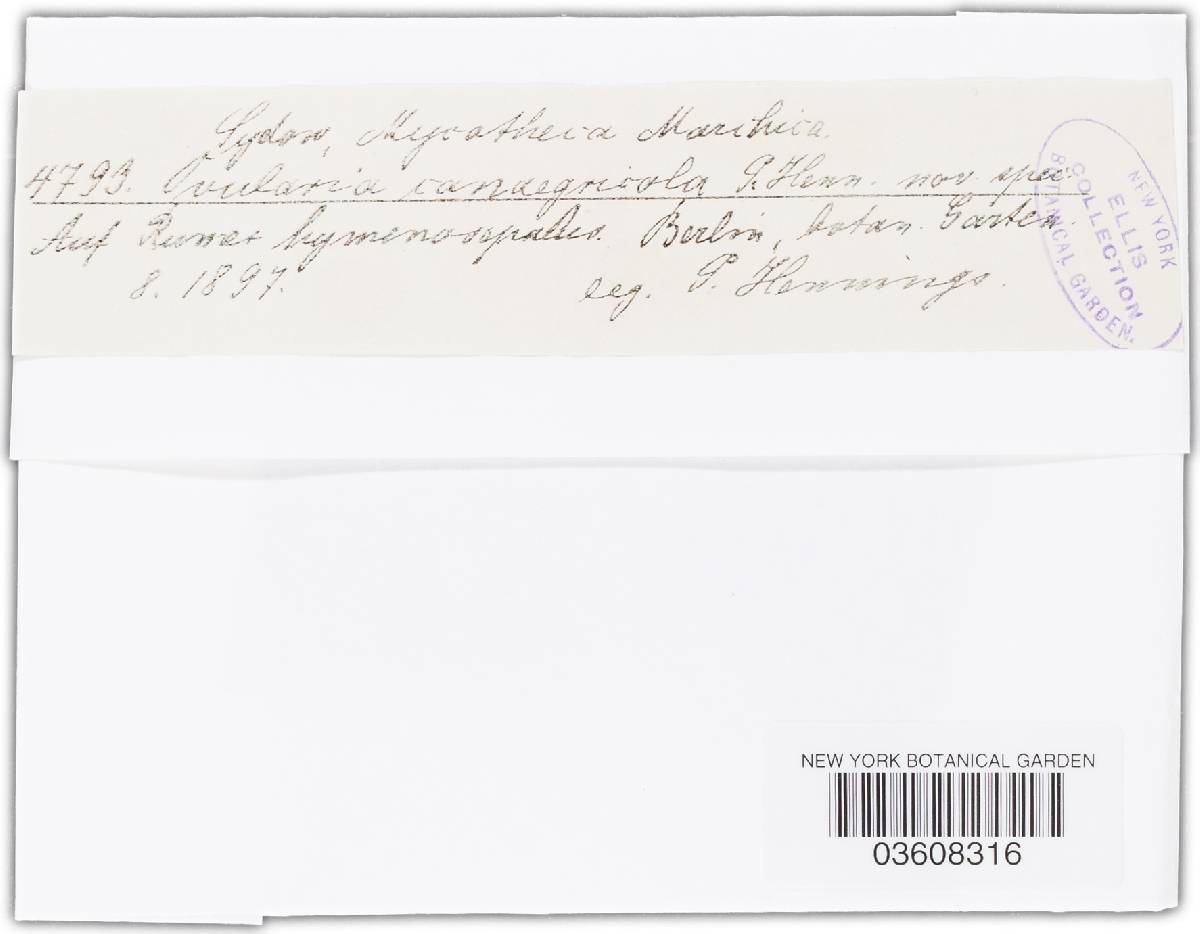 Sydow, Mycotheca Marchica.
4793. Ovularia canaegricola P. Henn. nov. spec.
Auf Rumex hymenosepalus. Berlin, botan. Garten.
8. 1897. leg. P. Hennings.
NEW YORK
BOTANICAL GARDEN.
ELLIS
COLLECTION
NEW YORK BOTANICAL GARDEN
03608316